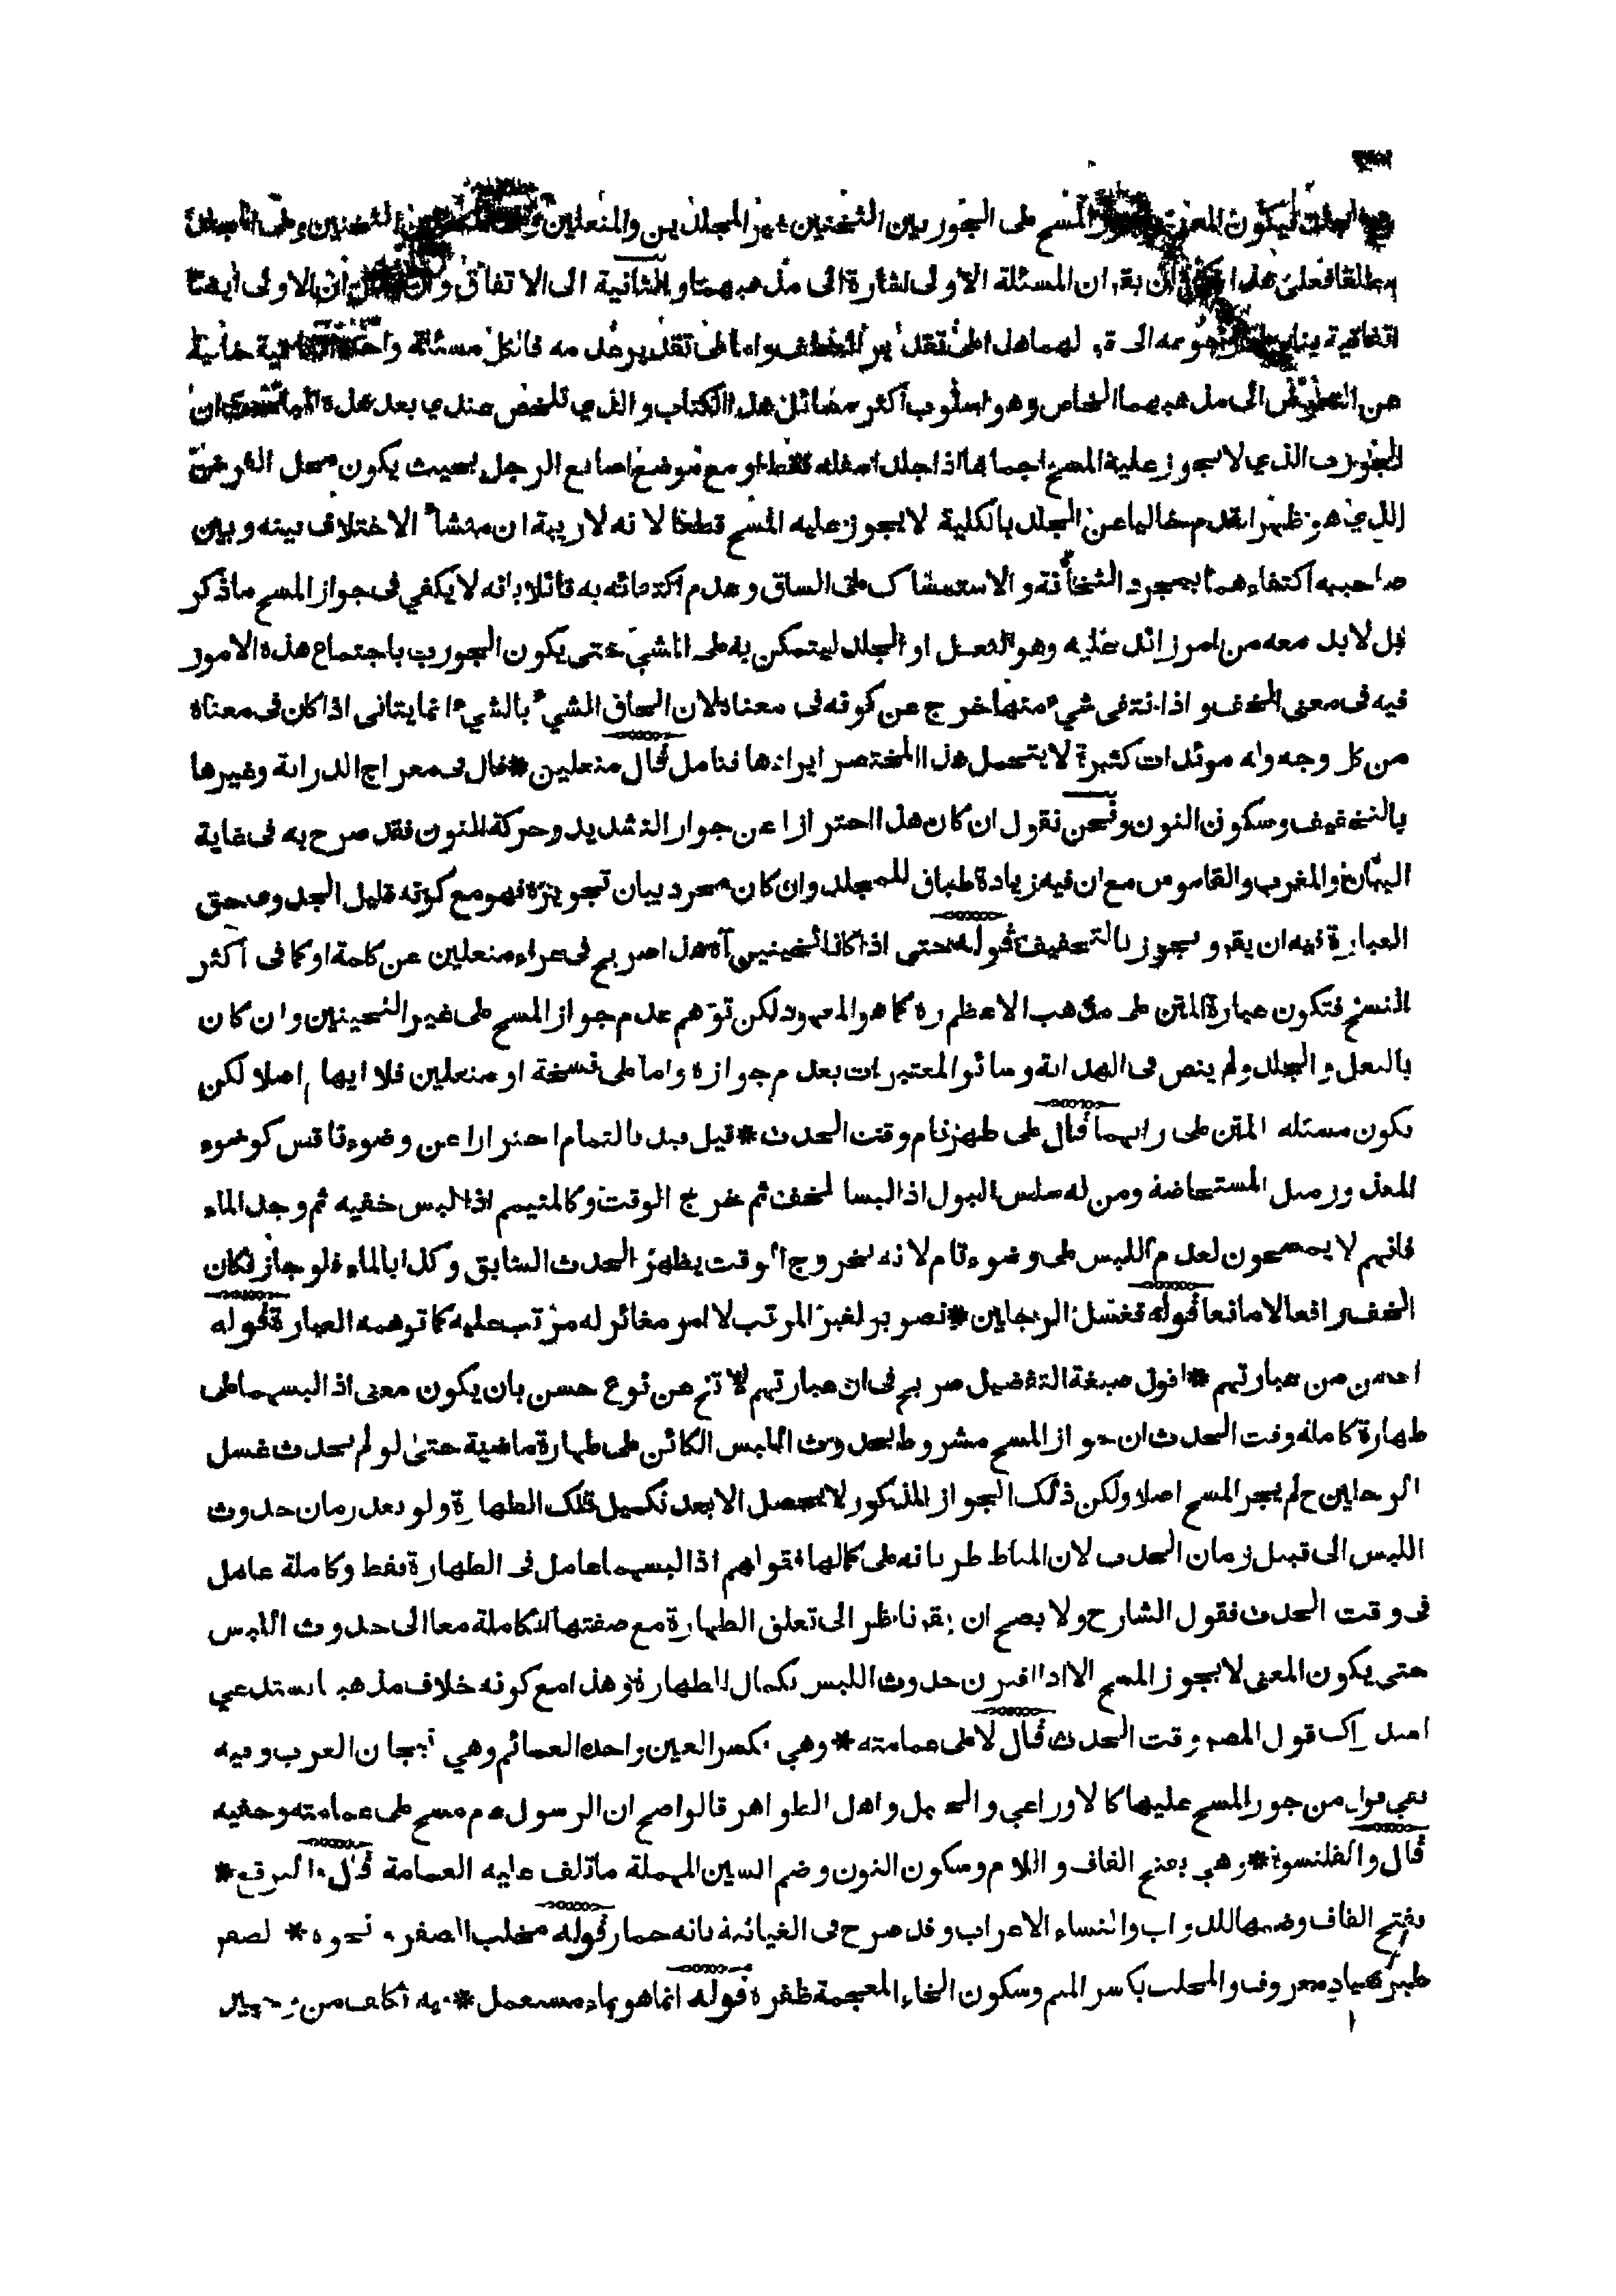 المسح على الجوربين الثخينين غير المجلدين والمنعلين الثخنين وعلى
مطلقا فعلى هذا ان يقر ان المسئلة الاولى اشارة الى مذهبهما والثانية الى الاتفاق و ان الاولى ايضا
اتفاقية لهما هذا على تقدير العطف واما على تقدير عدمه فالكل مسئلة خالية
عن التعرض الى مذهبهما الخاص وهو اسلوب اكثر مسائل هذا الكتاب والذي تلخص عندي بعد هذه ان
الجورب الذي لا يجوز عليه المسح اجماعا اذا جلد اسفله فقط او مع موضع اصابع الرجل بحيث يكون محل الفرض
الذي هو ظهر القدم خاليا عن الجلد بالكلية لا يجوز عليه المسح قطعا لانه لا ريبة ان منشأ الاختلاف بينه وبين
صاحبيه اكتفاءهما بمجرد الثخانة والاستمساك على الساق وعدم اكتفائه به قائلا بانه لا يكفي فى جواز المسح ما ذكر
بل لا بد معه من امر زائد عليه وهو النعل او الجلد ليتمكن به على المشي حتى يكون الجورب باجتماع هذه الامور
فيه فى معنى الخف واذا انتفى شيء منها خرج عن كونه فى معناه لان الحاق الشيء بالشيء انما يتاتى اذا كان فى معناه
من كل وجه وله موئدات كثيرة لا يتحمل هذا المختصر ايرادها فتامل قال منعلين * قال فى معراج الدراية وغيرها
بالتخفيف وسكون النون ونحن نقول ان كان هذا احترازا عن جواز التشديد وحركة النون فقد صرح به فى غاية
البيان والمغرب والقاموس مع ان فيه زيادة طباق للمجلد وان كان مجرد بيان تجويزه فهو مع كونه قليل الجدوى حق
العبارة فيه ان يقر ويجوز بالتخفيف قوله حتى اذا كانا ثخينين آه هذا صريح فى عراء منعلين عن كلمة او كما فى اكثر
النسخ فتكون عبارة المتن على مذهب الاعظم ره كما هو المعهود لكن توهم عدم جواز المسح على غير الثخينين وان كان
بالنعل والجلد ولم ينص فى الهداية وسائر المعتبرات بعدم جوازه واما على نسخة او منعلين فلا ايهام اصلا لكن
يكون مسئلة المتن على رايهما قال على طهر تام وقت الحدث * قيل قيد بالتمام احترازا عن وضوء ناقص كوضوء
المعذور مثل المستحاضة ومن له سلس البول اذا لبسا لخف ثم خرج الوقت وكالمتيمم اذا لبس خفيه ثم وجد الماء
فانهم لا يمسحون لعدم اللبس على وضوء تام لانه بخروج الوقت يظهر الحدث السابق وكذا بالماء فلو جاز لكان
الخف رافعا لا مانعا قوله فغسل الرجلين * تصوير لغير المرتب لا امر مغائر له مرتب عليه كما توهمه العبارة قوله
احسن من عبارتهم * اقول صيغة التفضيل صريح فى ان عبارتهم لا تخ عن نوع حسن بان يكون معنى اذا لبسهما على
طهارة كاملة وقت الحدث ان جواز المسح مشروط بحدوث اللبس الكائن على طهارة ماضية حتى لو لم يحدث غسل
الرجلين ح لم يجز المسح اصلا ولكن ذلك الجواز المذكور لا يحصل الا بعد تكميل تلك الطهارة ولو بعد زمان حدوث
اللبس الى قبيل زمان الحدث لان المناط طريانه على كمالها فقولهم اذا لبسهما عامل فى الطهارة فقط وكاملة عامل
فى وقت الحدث فقول الشارح ولا يصح ان يقر ناظر الى تعلق الطهارة مع صفتها الكاملة معا الى حدوث اللبس
حتى يكون المعنى لا يجوز المسح الا اذا اقترن حدوث اللبس بكمال الطهارة وهذا مع كونه خلاف مذهبنا يستدعي
قول المصه وقت الحدث قال لا على عمامته * وهي بكسر العين واحدة العمائم وهي تيجان العرب وفيه
نفي قول من جوز المسح عليها كالاوزاعي واهل الظواهر قالوا صح ان الرسول عم مسح على عمامته وخفيه
قال والقلنسوة * وهي بفتح القاف واللام وسكون النون وضم السين المهملة ما تلف عليه العمامة قال والبرقع *
بفتح القاف وضمها للدواب والنساء الاعراب وقد صرح فى الغياثية بانه خمار قوله مخلب الصقر ونحوه * لصقر
طير صياد معروف والمخلب بكسر الميم وسكون الخاء المعجمة ظفره قوله انما هو بماء مستعمل * فيه